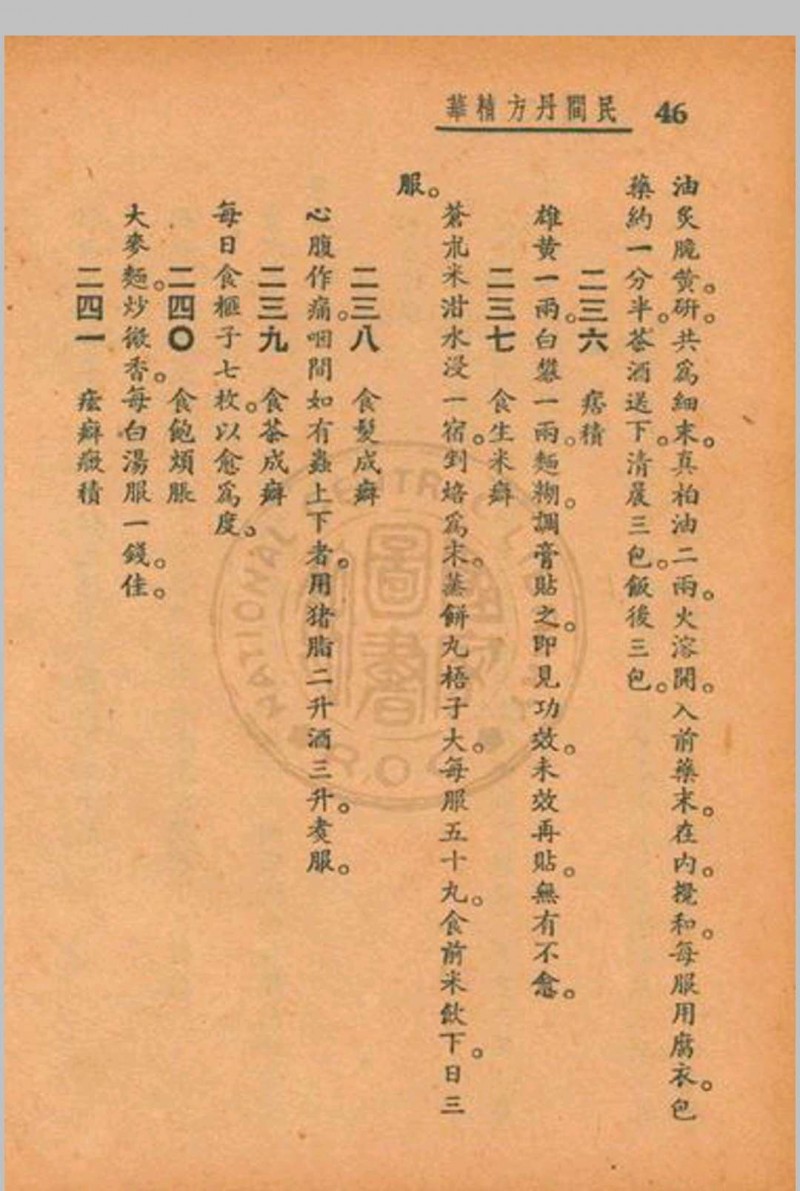 民間丹方精華 46
油炙脆黃。研。共爲細末。真柏油二兩。火溶開。入前藥末。在內。攪和。每服用腐衣。包
藥約一分半。茶酒送下。清晨三包。飯後三包。
二三六 痞積
雄黃一兩。白礬一兩。麵糊。調膏貼之。即見功效。未效再貼。無有不愈。
二三七 食生米癖
蒼朮米泔水浸一宿。剉焙爲末。蒸餅丸梧子大。每服五十丸。食前米飲下。日三
服。
二三八 食髮成癖
心腹作痛。咽間如有蟲上下者。用猪脂二升酒三升。煑服。
二三九 食茶成癖
每日食榧子七枚。以愈爲度。
二四〇 食飽煩脹
大麥麵。炒微香。每白湯服一錢。佳。
二四一 痃癖癥積
NATIONAL CENTRAL LIBRARY R.O.C.
國家圖書館